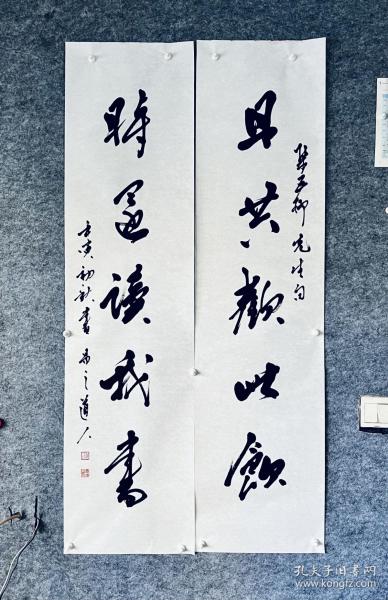 且共歡此飲
集五柳先生句
時還讀我書
壬寅初秋書 易之道人
孔夫子旧书网
www.kongfz.com